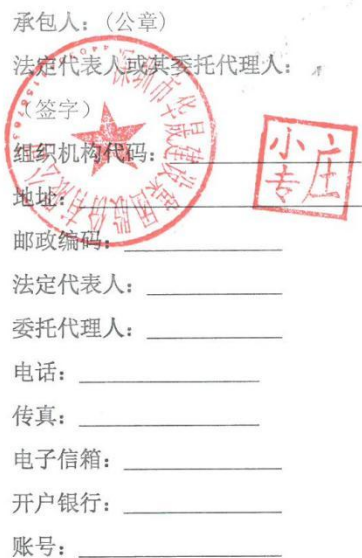 承包人：(公章)
法定代表人或其委托代理人：
（签字）
组织机构代码：
地址：
邮政编码：
法定代表人：
委托代理人：
电话：
传真：
电子信箱：
开户银行：
账号：
深圳市华晟建设集团股份有限公司
小庄
专